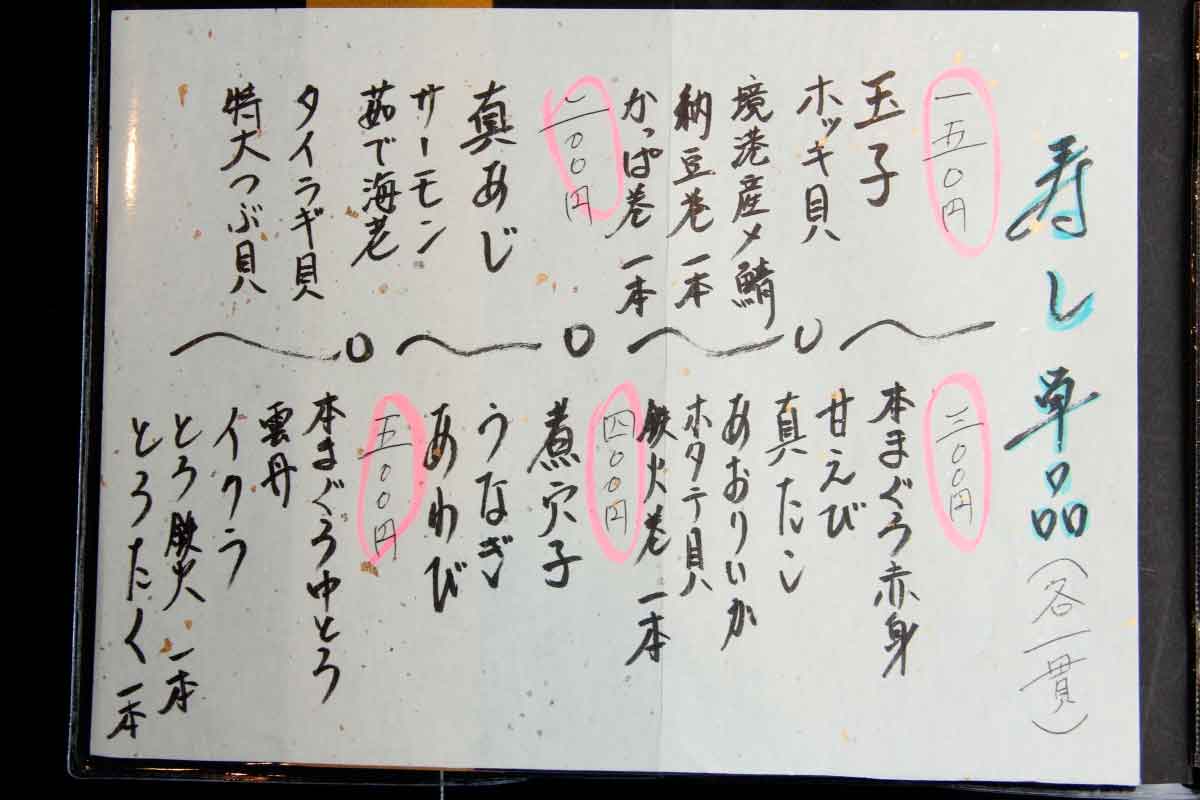 寿し単品(各一貫)
一五〇円
玉子
ホッキ貝
境港産〆鯖
納豆巻一本
かっぱ巻一本
二〇〇円
真あじ
サーモン
茹で海老
タイラギ貝
特大つぶ貝
三〇〇円
本まぐろ赤身
甘えび
真たこ
あおりいか
ホタテ貝
鉄火巻一本
四〇〇円
煮穴子
うなぎ
あわび
五〇〇円
本まぐろ中とろ
雲丹
イクラ
とろ鉄火一本
とろたく一本